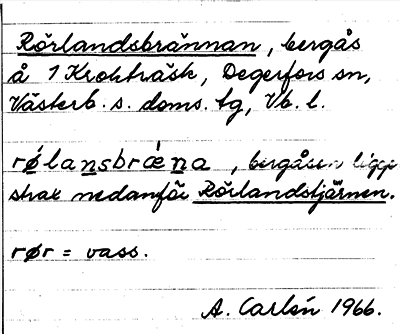 Rörlandsbrännan, bergås
å 1 Krokträsk, Degerfors sn,
Västerb. s. doms. tg, Vb. l.
rǿlansbrǽna, bergåsen ligger
strax nedanför Rörlandstjärnen.
rør = vass.
A. Carlén 1966.